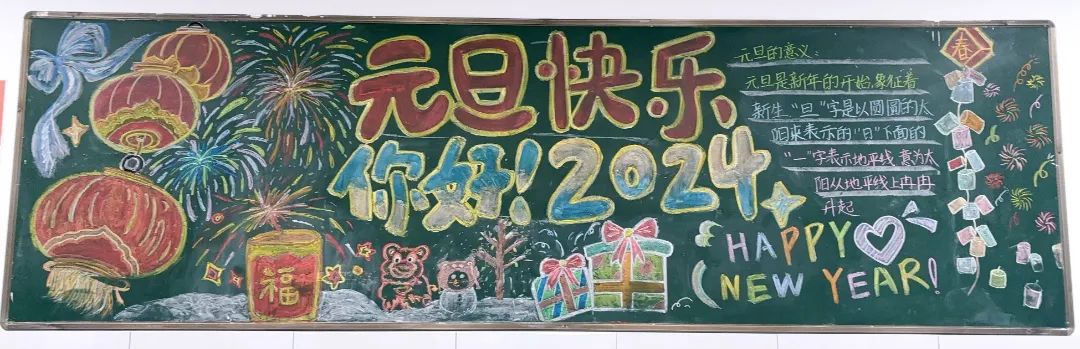 元旦快乐
你好!2024
元旦的意义:
元旦是新年的开始,象征着
新生."旦"字是以圆圆的太
阳来表示的."日"下面的
"一"字表示地平线,意为太
阳从地平线上冉冉
升起
春
福
HAPPY
NEW YEAR!